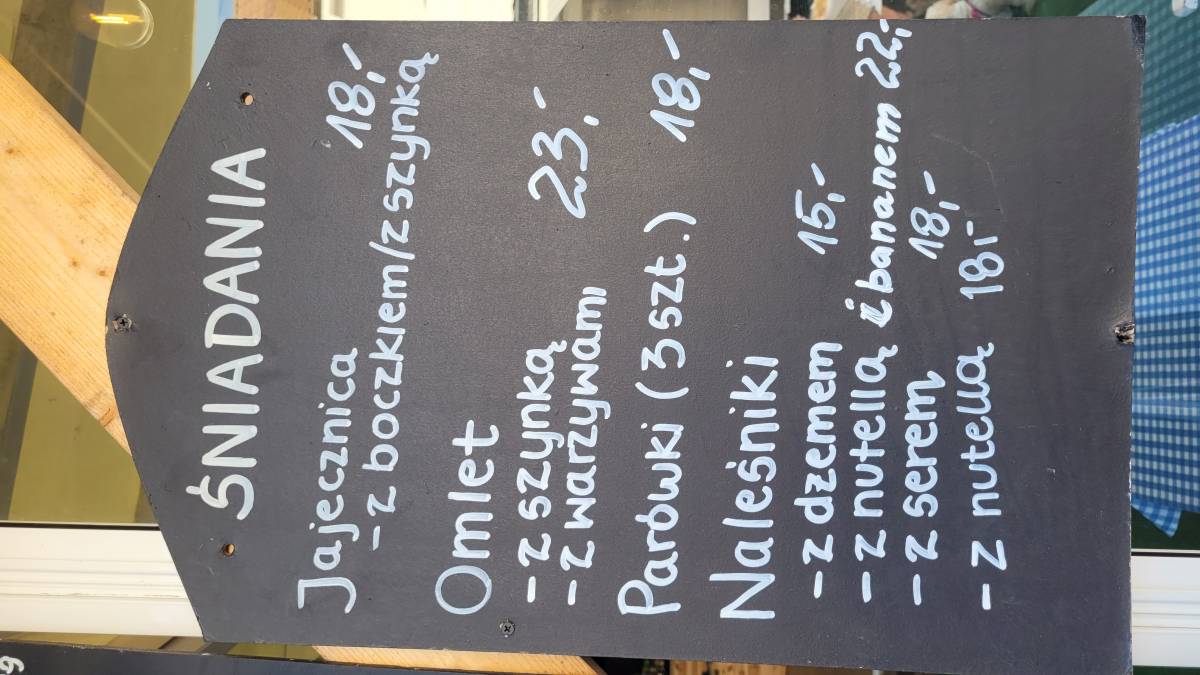 ŚNIADANIA
Jajecznica 18,-
- z boczkiem/z szynką
Omlet
- z szynką 23,-
- z warzywami
Parówki (3 szt.) 18,-
Naleśniki
- z dżemem 15,-
- z nutellą i bananem 22,-
- z serem 18,-
- z nutellą 18,-